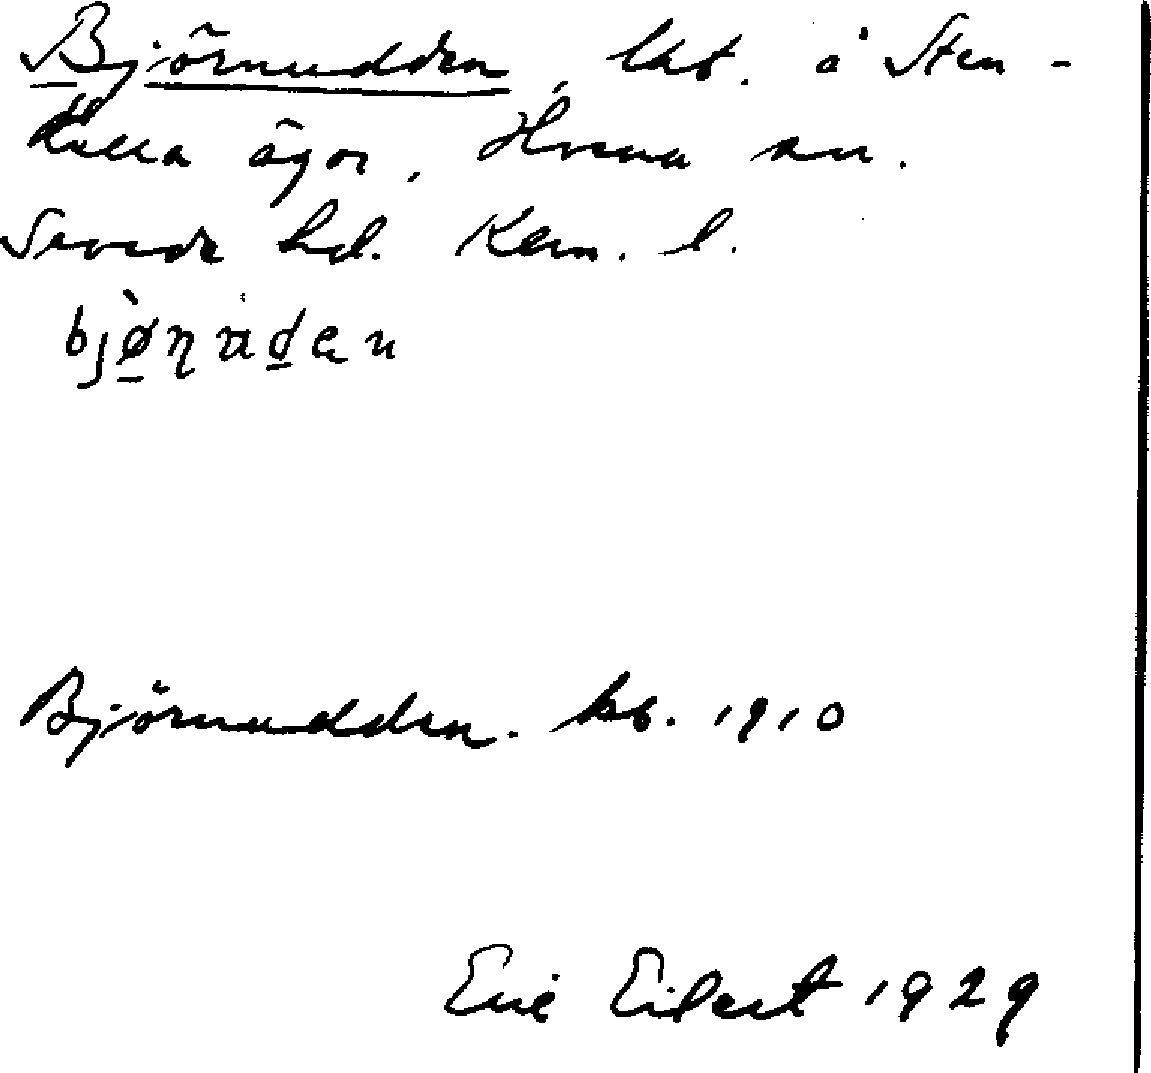 Björnudden, lht. å Sten-
källa ägor, Hvena sn.
Sevede hd. Kalm. l.
bjønuden
Björnudden. kb. 1910
Eric Eilert 1929